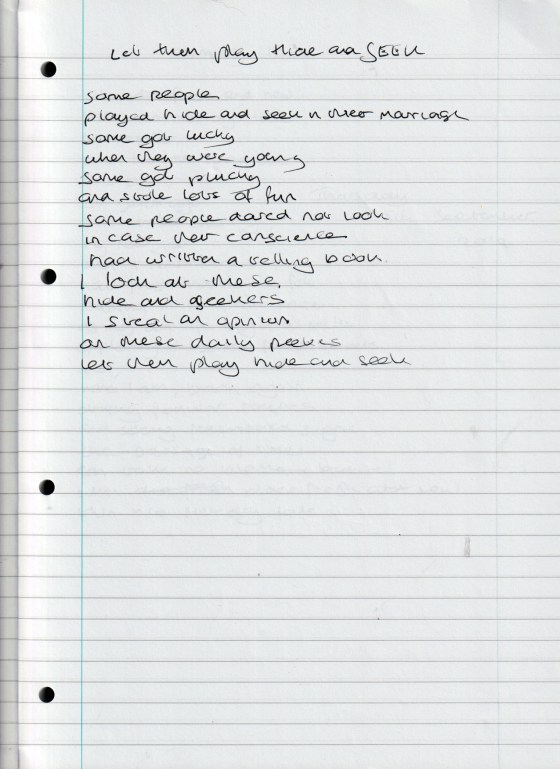 Let them play Hide and SEEK
some people
played hide and seek in their marriage
some got lucky
when they were young
some got plucky
and stole lots of fun
some people dared not look
in case their conscience
had written a telling book.
I look at these,
hide and seekers
I steal an opinion
on these daily peekers
let them play hide and seek